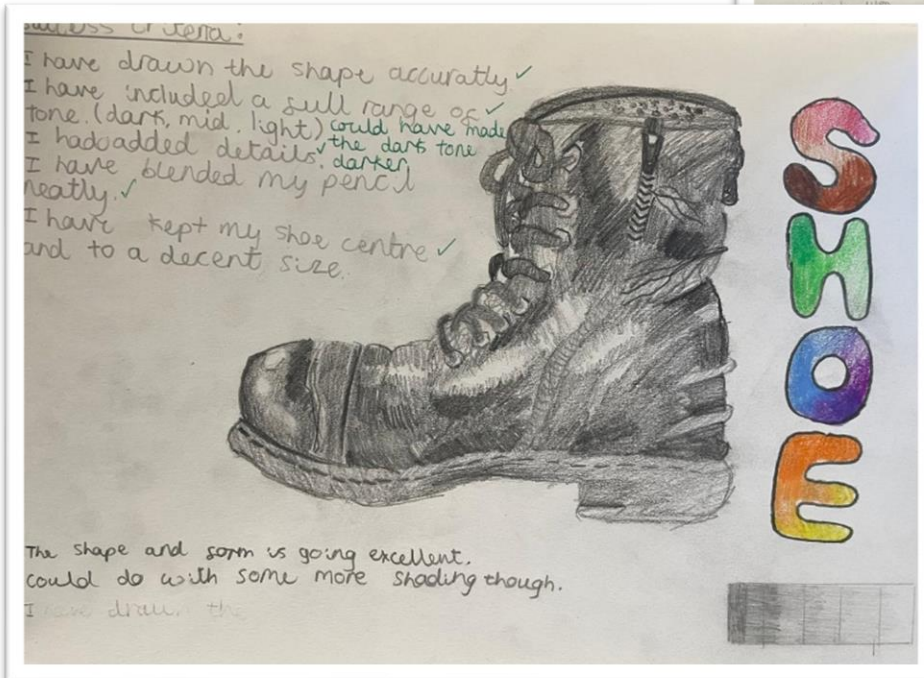 Success Criteria:
I have drawn the shape accuratly ✓
I have included a full range of ✓
tone. (dark, mid, light) could have made
I hadoadded details. ✓ the dark tone
darker
I have blended my pencil
neatly. ✓
I have kept my shoe centre ✓
and to a decent size.
SHOE
The shape and form is going excellent.
could do with some more shading though.
I have drawn the